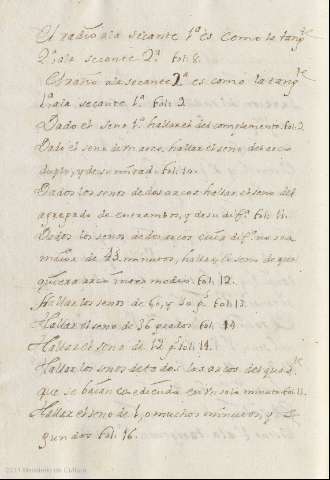 El radio ala secante 1ª es como la tangte
2ª ala secante 2ª. fol. 8.
El radio ala secante 2ª es como la tangte
1ª ala secante 1ª. fol. 9.
Dado el seno 1º hallar el del complemento. fol. 9.
Dado el seno de un arco, hallar el seno del arco
duplo, y de su mitad. fol. 10.
Dados los senos de dos arcos hallar el seno del
agregado de entrambos, y de su difª. fol. 11.
Dados los senos de dos arcos, cuia difª no sea
maior de 45 minutos, hallar el seno de qual
quiera arco intermedio. fol. 12.
Hallar los senos de 60, y 30 gs. fol. 13.
Hallar el seno de 36 grados fol. 14.
Hallar el seno de 12 gs. fol. 14.
Hallar los senos de todos los arcos del quadte
que se baian excediendo en un solo minuto. fol. 15.
Hallar el seno de 1, o muchos minutos, y se-
gundos. fol. 16.
2011 Ministerio de Cultura